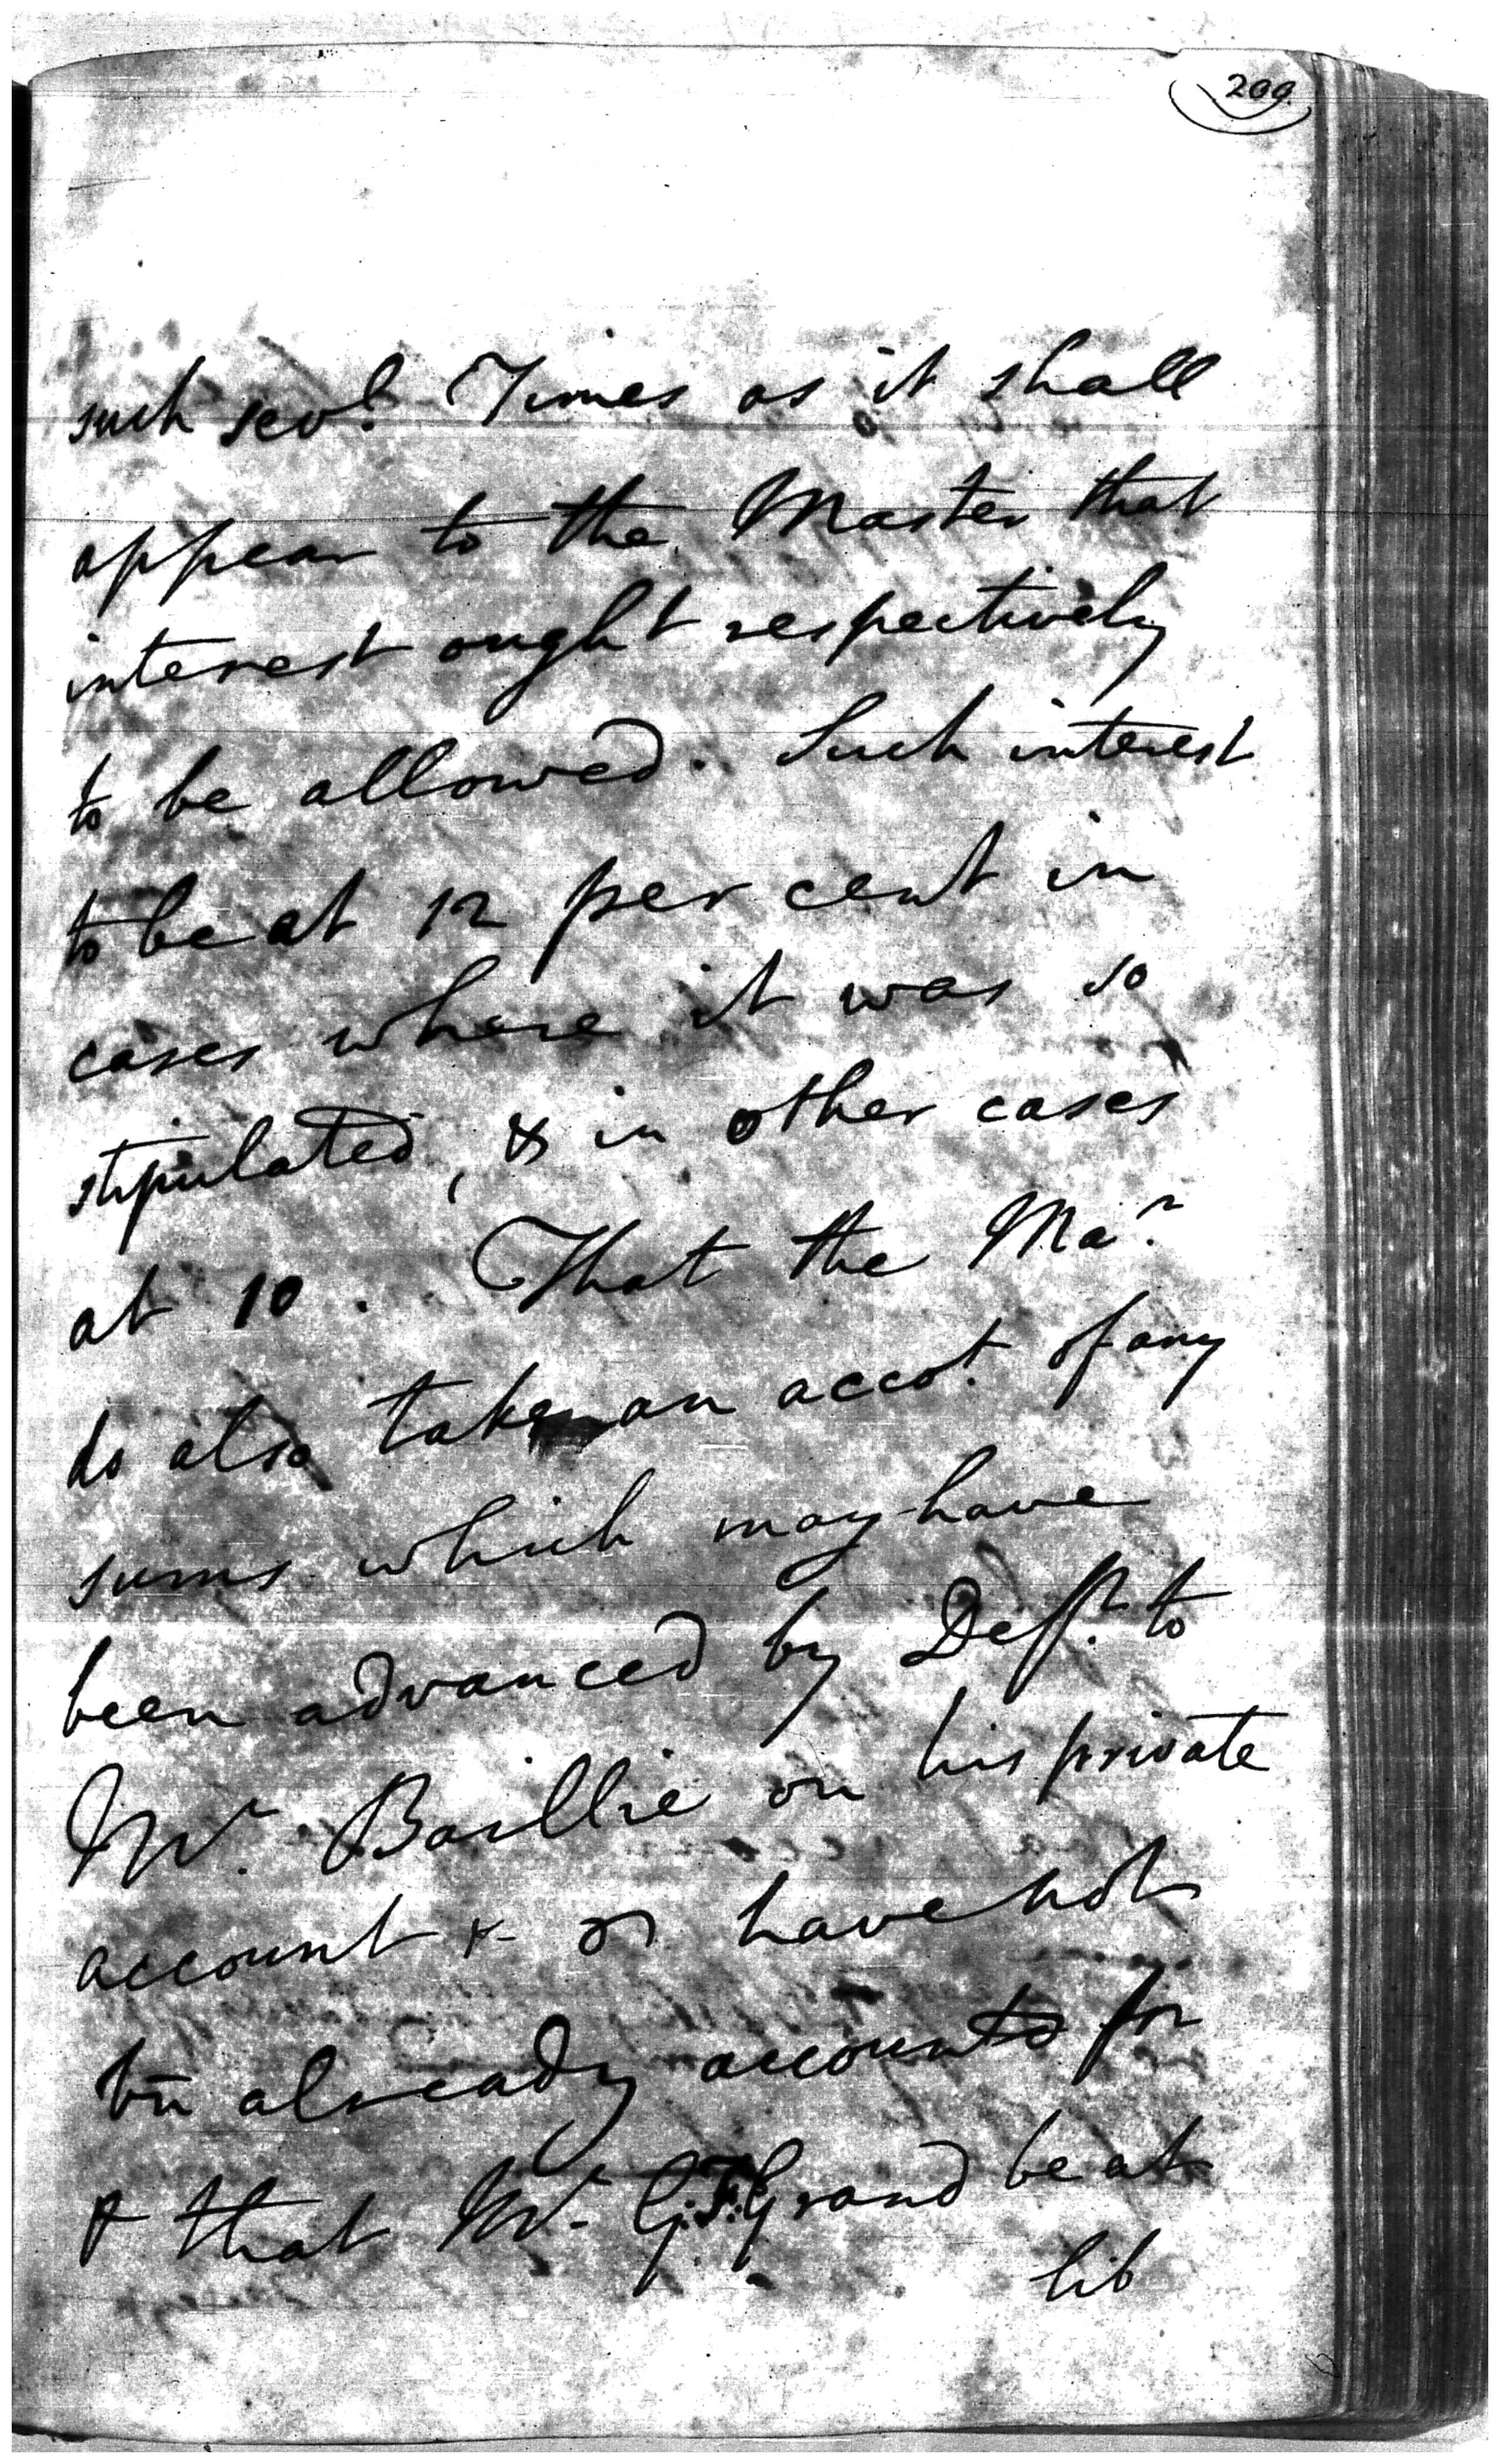 200.
such sevl. Times as it shall
appear to the Master that
interest ought respectively
to be allowed. Such interest
to be at 12 per cent in
cases where it was so
stipulated, & in other cases
at 10. That the Mar.
do also take an accot. of any
sums which may have
been advanced by Deft. to
Mr. Baillie on his private
account & have not
bn already accounted for
& that Mr. G. F. Grand be at
lib